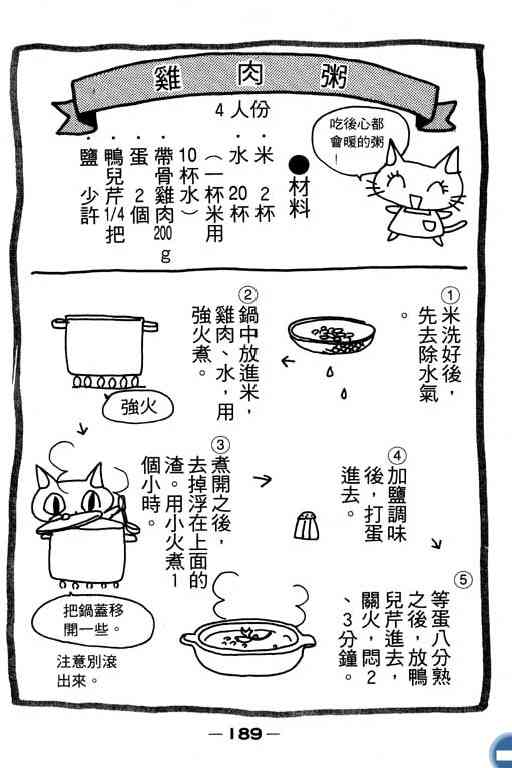 雞肉粥
4人份
吃後心都
會暖的粥
!
●材料
・米 2杯
・水 20杯
（一杯米用
10杯水）
・帶骨雞肉200g
・蛋 2個
・鴨兒芹1/4把
・鹽 少許
①米洗好後，
先去除水氣
。
②鍋中放進米，
雞肉、水，用
強火煮。
強火
③煮開之後，
去掉浮在上面的
渣。用小火煮1
個小時。
把鍋蓋移
開一些。
注意別滾
出來。
④加鹽調味
後，打蛋
進去。
⑤等蛋八分熟
之後，放鴨
兒芹進去，
關火，悶2
、3分鐘。
—189—